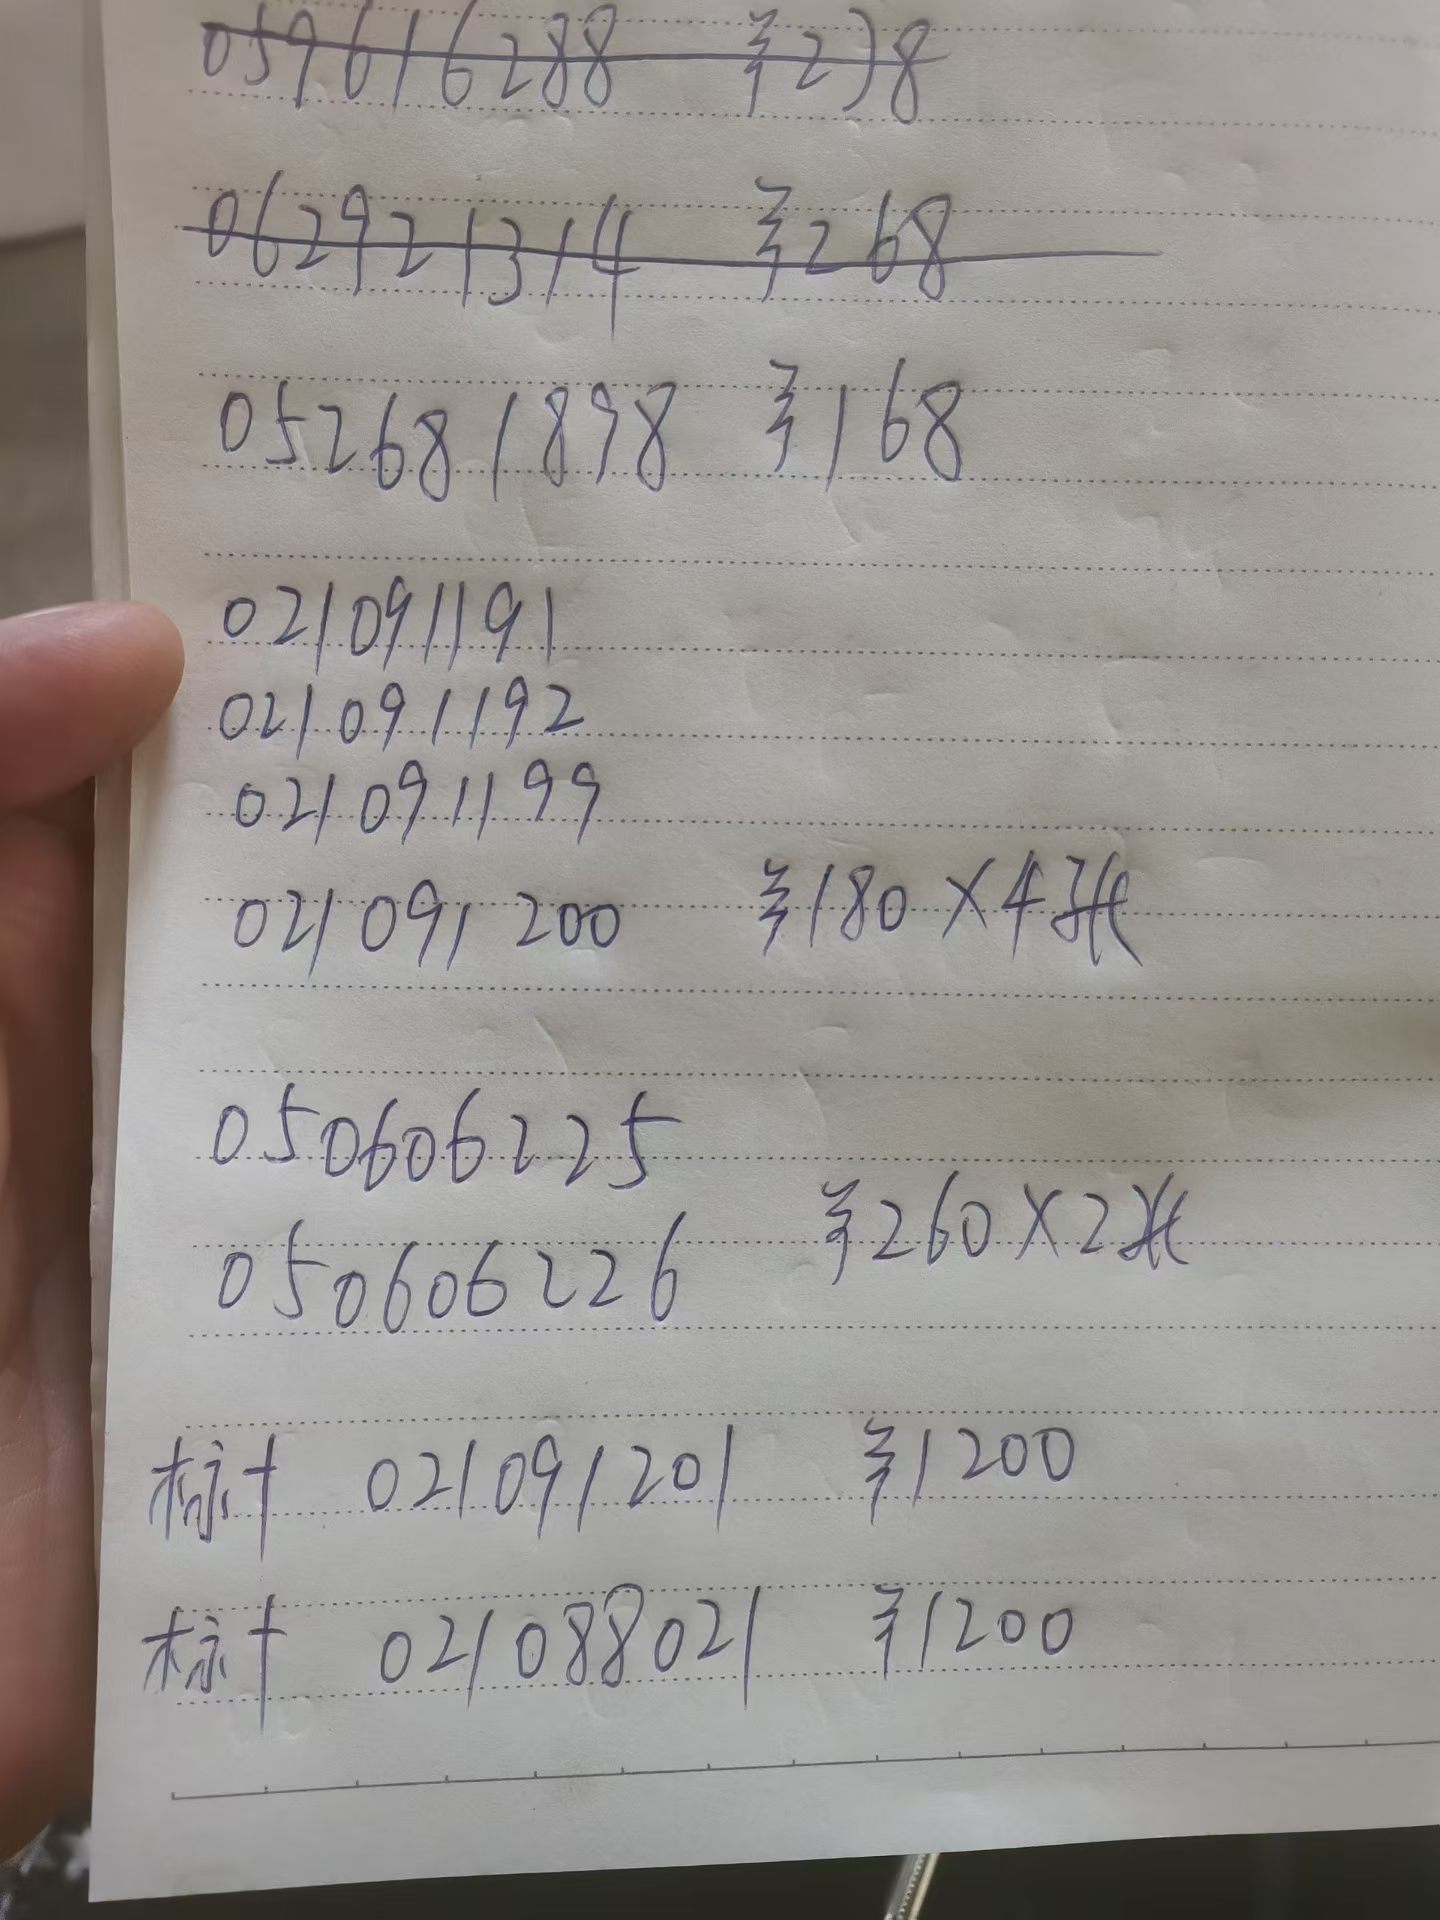 059616288 ¥238
062921314 ¥268
052681898 ¥168
021091191
021091192
021091199
021091200 ¥180×4张
050606225
¥260×2张
050606226
标十 021091201 ¥1200
标十 021088021 ¥1200